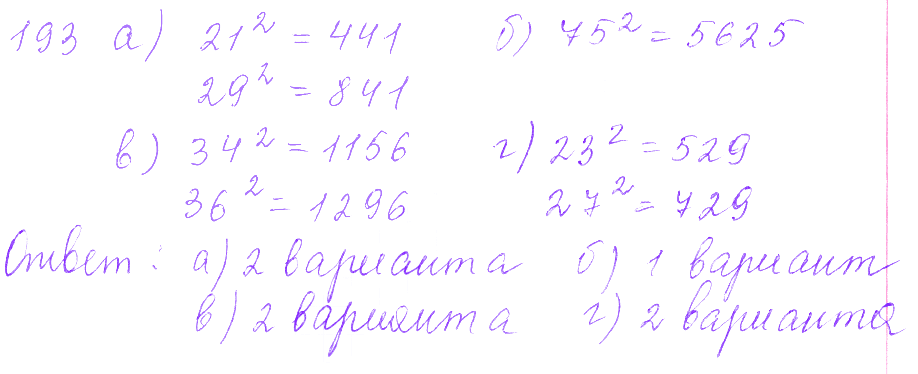 193 а) 21² = 441 б) 75² = 5625
29² = 841
в) 34² = 1156 г) 23² = 529
36² = 1296 27² = 729
Ответ: а) 2 варианта б) 1 вариант
в) 2 варианта г) 2 варианта